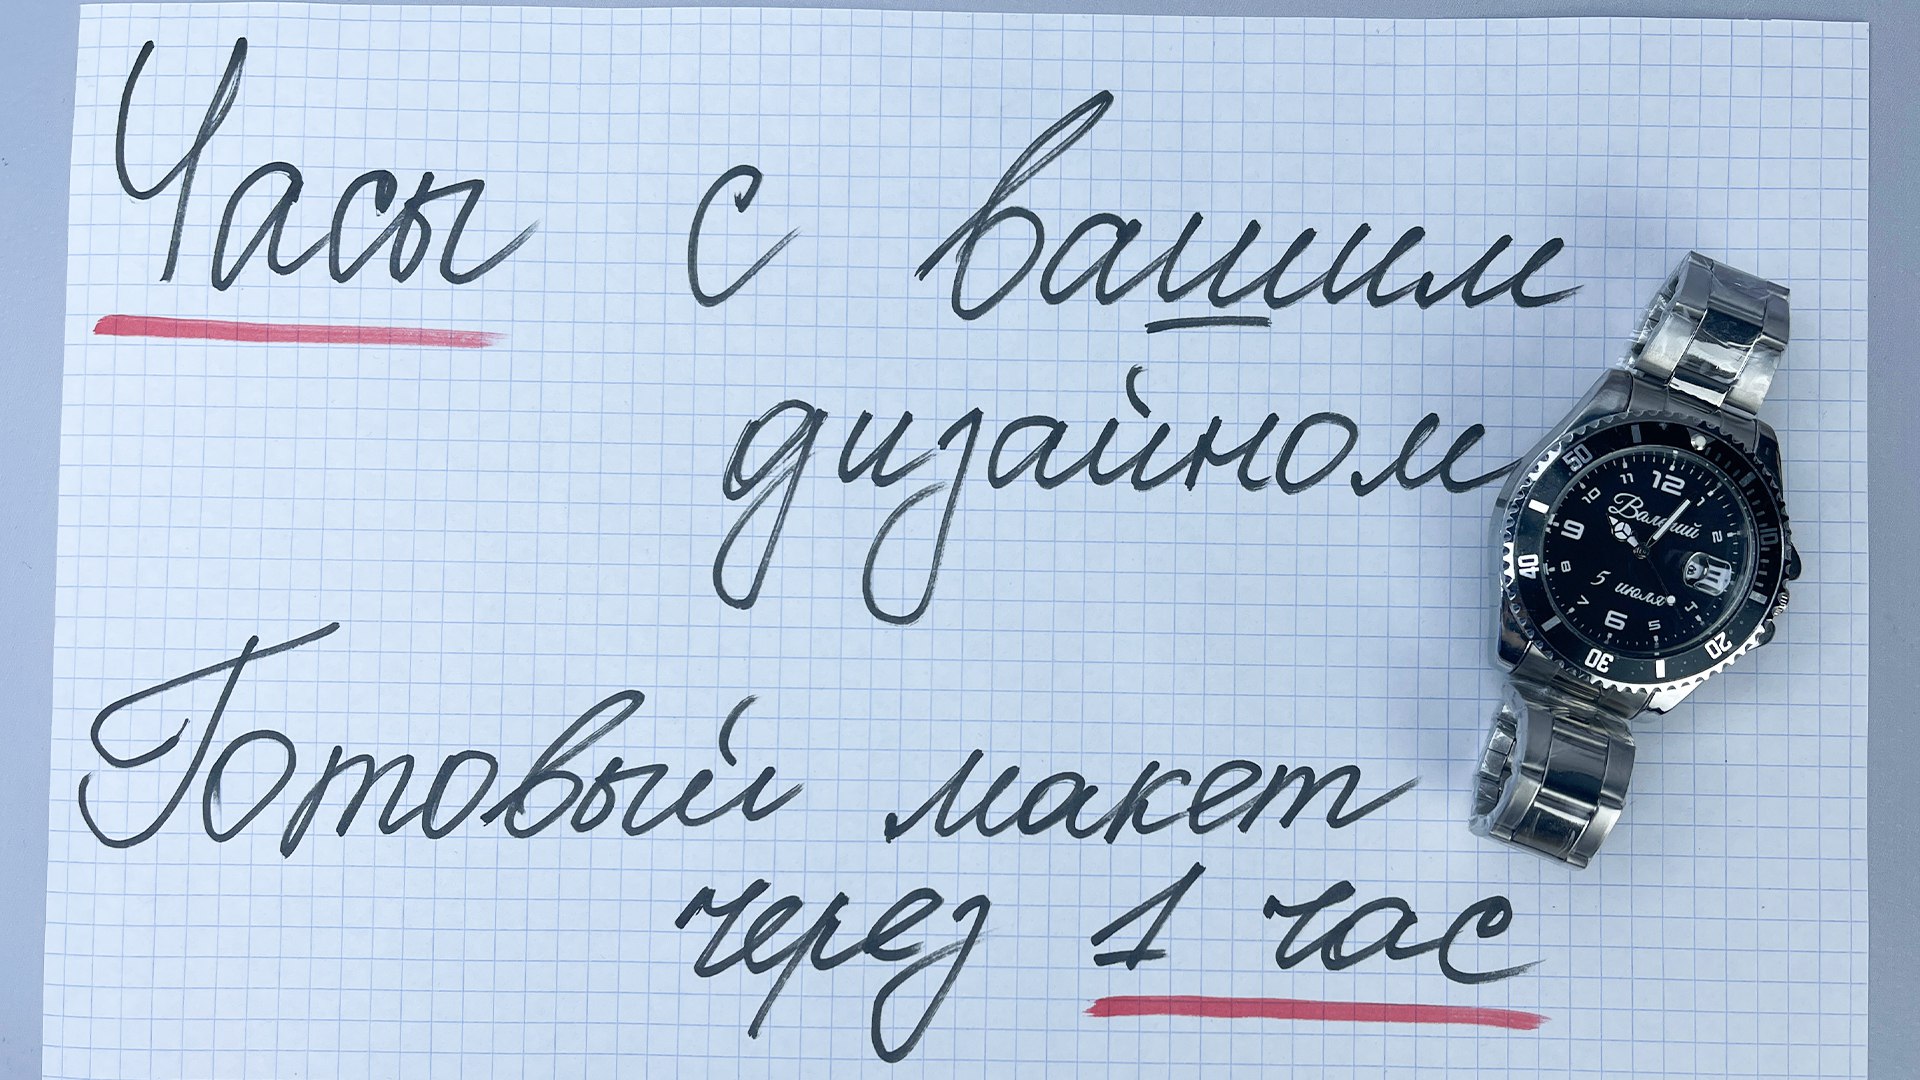 Часы с вашим
дизайном
Готовый макет
через 1 час
50
12
11
1
10
Валерий
2
10
9
40
8
5 июля
7
6
5
30
20